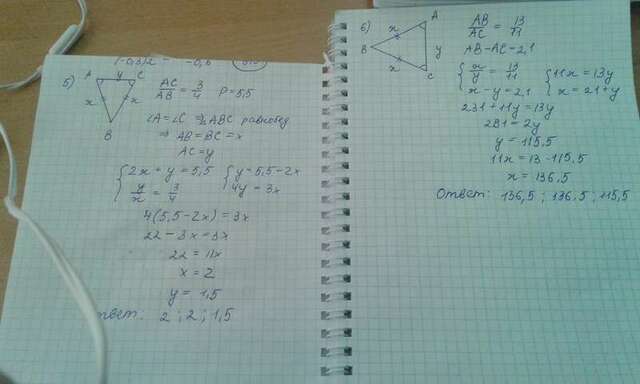 (-0,3)x = -0,6
5)
A y C
x x
B
AC/AB = 3/4 P=5,5
∠A=∠C ⇒ △ABC равнобед
⇒ AB=BC=x
AC=y
{2x+y=5,5 {y=5,5-2x
{y/x = 3/4 {4y=3x
4(5,5-2x)=3x
22-8x=3x
22=11x
x=2
y=1,5
ответ: 2; 2; 1,5
6)
A
x
B y
x
C
AB/AC = 13/11
AB-AC=2,1
{x/y = 13/11 {11x=13y
{x-y=2,1 {x=21+y
231+11y=13y
231=2y
y=115,5
11x=13·115,5
x=136,5
Ответ: 136,5; 136,5; 115,5